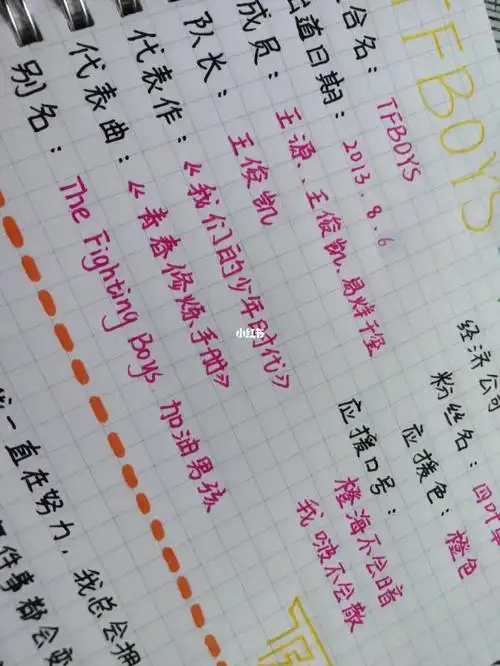 TFBOYS
合名：TFBOYS
出道日期：2013.8.6
成员：王源、王俊凯、易烊千玺
队长：王俊凯
代表作：《我们的少年时代》
代表曲：《青春修炼手册》
别名：The Fighting Boys 加油男孩
经济公司
粉丝名：四叶草
应援色：橙色
应援口号：
橙海不会暗
我吱不会散
小红书
一直在努力，我总会拥
件事都会变
TF